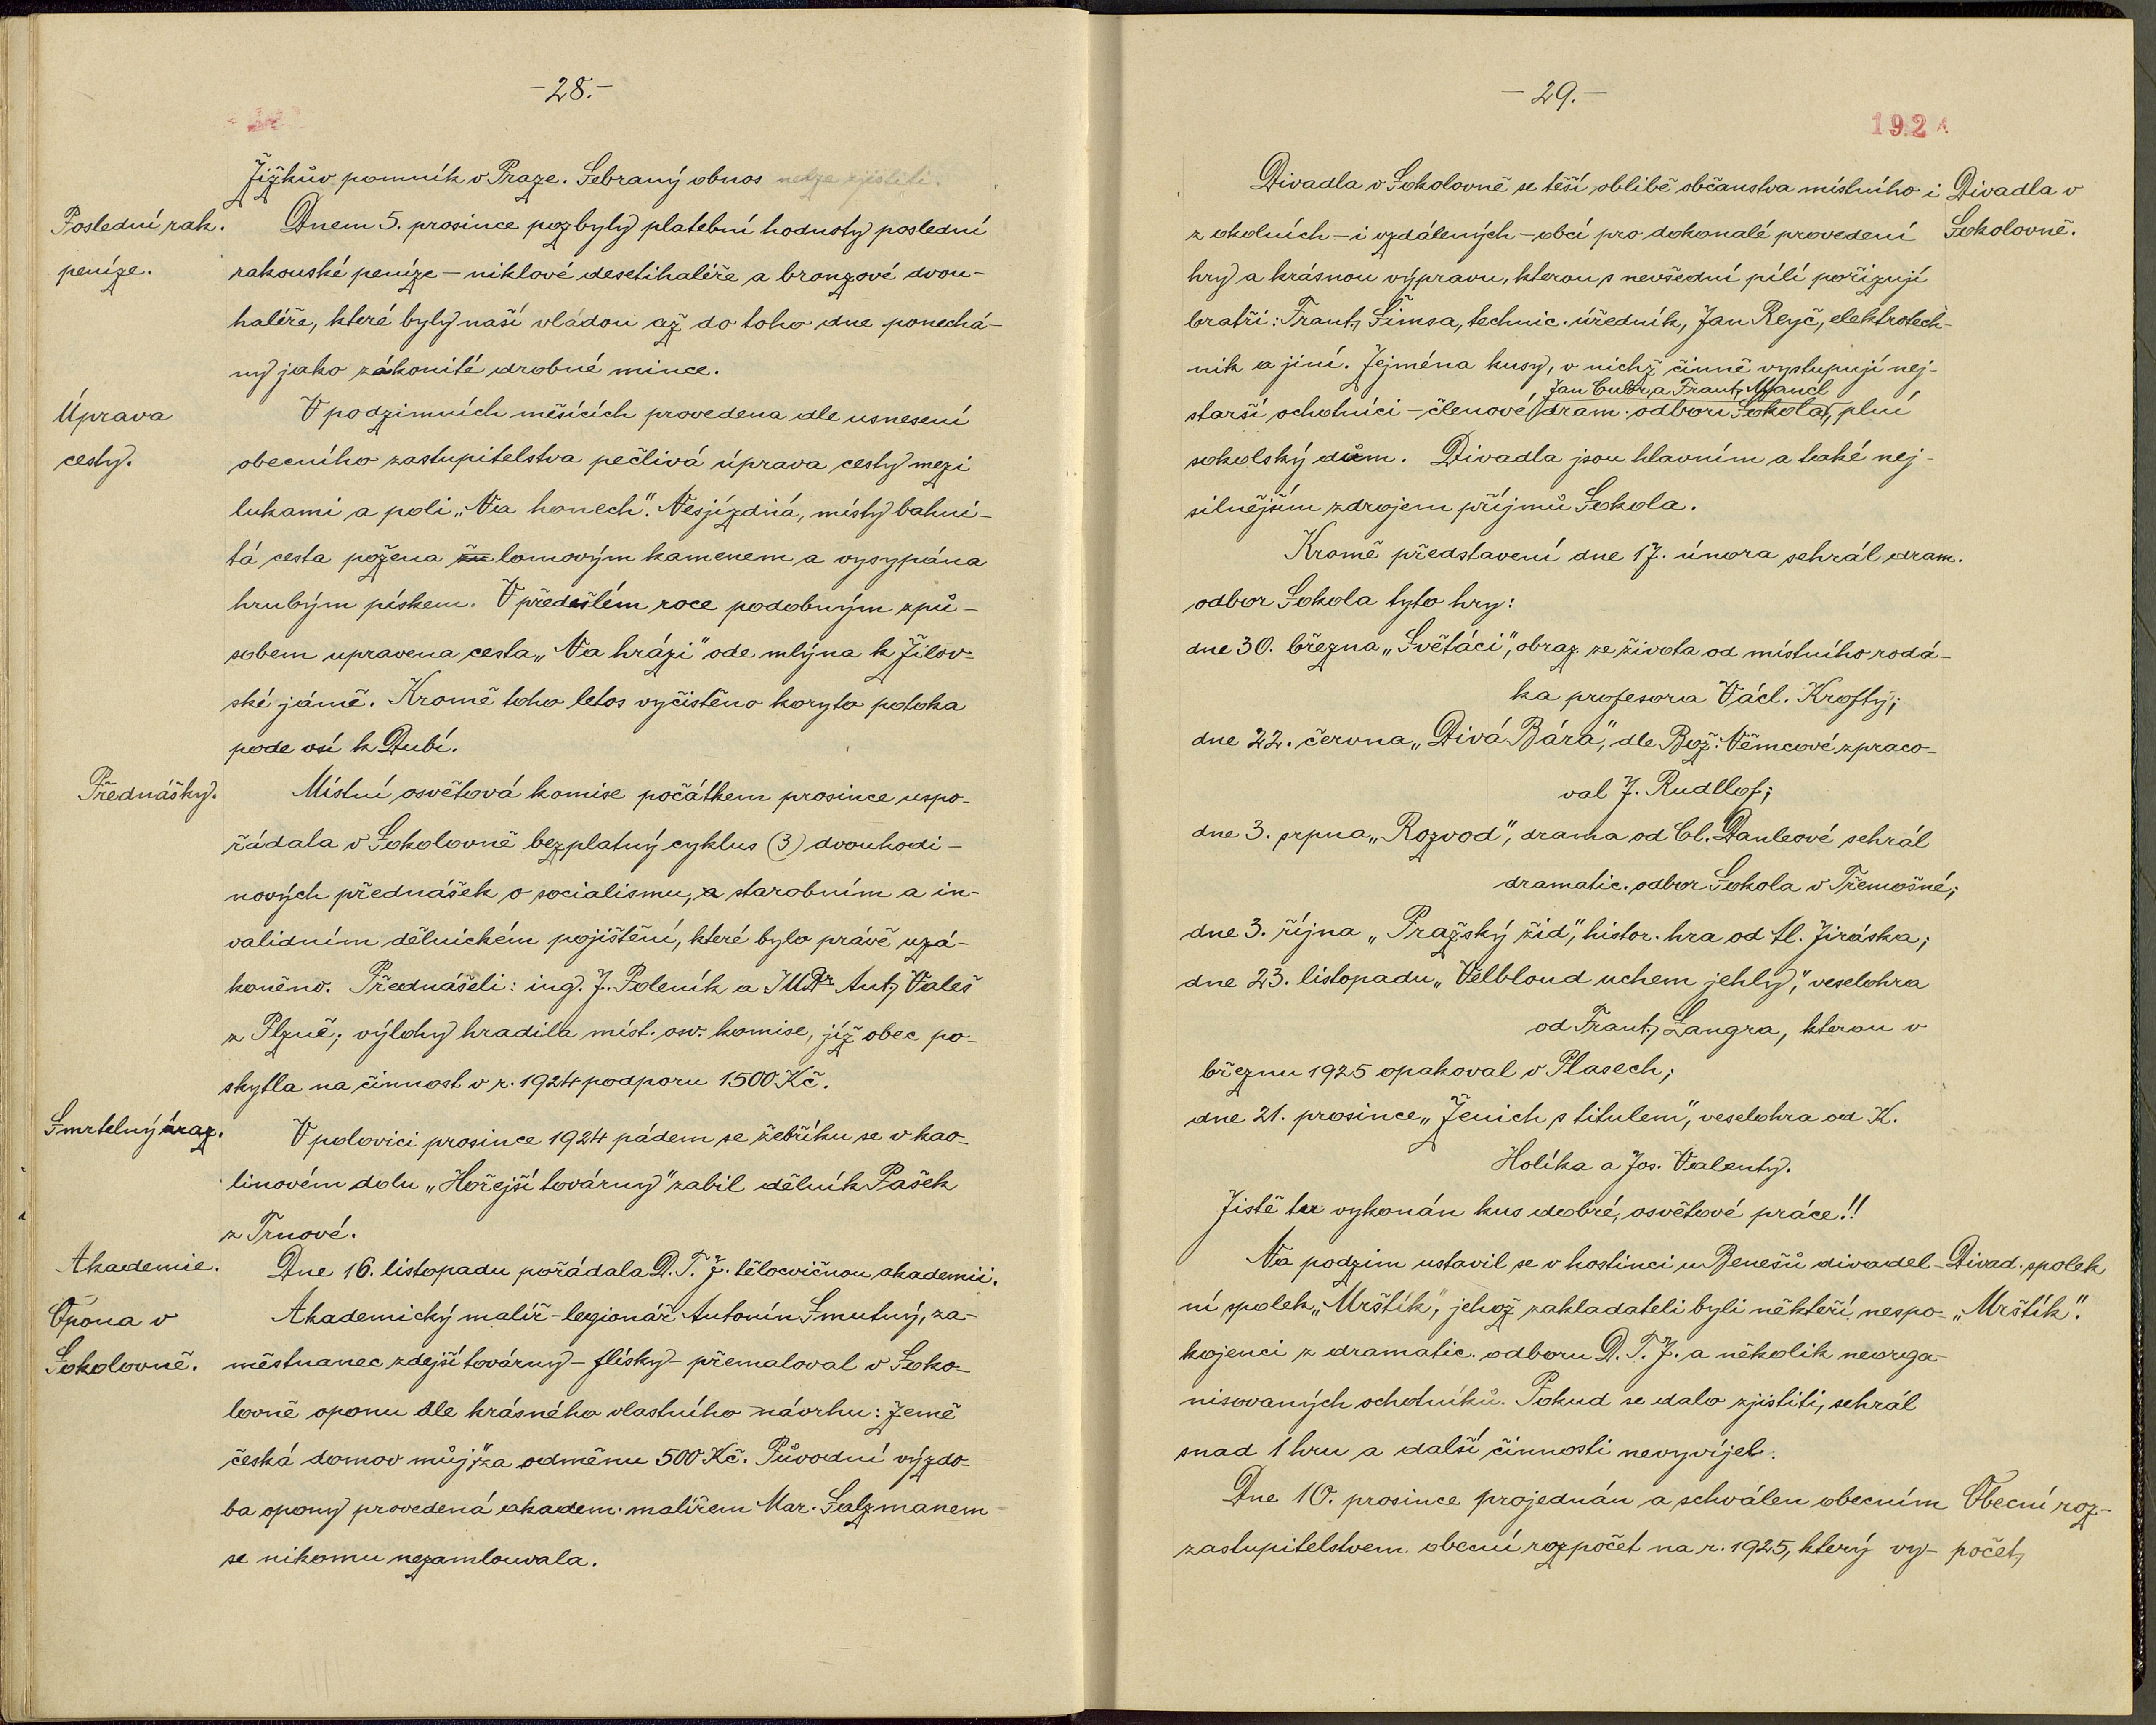 -28.-
Žižkův pomník v Praze. Sebraný obnos nelze zjistiti.
Poslední rak.
peníze.
Dnem 5. prosince pozbyly platební hodnoty poslední
rakouské peníze – niklové desetihaléře a bronzové dvou-
haléře, které byly naší vládou až do toho dne ponechá-
ny jako zákonité drobné mince.
Úprava
cesty.
V podzimních měsících provedena dle usnesení
obecního zastupitelstva pečlivá úprava cesty mezi
lukami a poli „Na honech". Nesjízdná, místy bahni-
tá cesta požena lomovým kamenem a vysypána
hrubým pískem. V předešlém roce podobným způ-
sobem upravena cesta „Na hrázi" ode mlýna k Žilov-
ské jámě. Kromě toho letos vyčistěno koryto potoka
pode vsí k Dubí.
Přednášky.
Místní osvětová komise počátkem prosince uspo-
řádala v Sokolovně bezplatný cyklus (3) dvouhodi-
nových přednášek o socialismu, a starobním a in-
validním dělnickém pojištění, které bylo právě uzá-
koněno. Přednášeli: ing. J. Poleník a JUDr Ant. Valeš
z Plzně; výlohy hradila míst. osv. komise, jíž obec po-
skytla na činnost v r. 1924 podporu 1500 Kč.
Smrtelný úraz.
V polovici prosince 1924 pádem se žebříku se v kao-
linovém dolu „Hořejší továrny" zabil dělník Pašek
z Trnové.
Akademie.
Dne 16. listopadu pořádala D. T. J. tělocvičnou akademii.
Opona v
Sokolovně.
Akademický malíř – legionář Antonín Smutný, za-
městnanec zdejší továrny – flísky – přemaloval v Soko-
lovně oponu dle krásného vlastního návrhu: Země
česká domov můj" za odměnu 500 Kč. Původní výzdo-
ba opony provedená akadem. malířem Mar. Salzmanem
se nikomu nezamlouvala.
-29.-
1924
Divadla v Sokolovně se těší oblibě občanstva místního i
z okolních – i vzdálených – obcí pro dokonalé provedení
hry a krásnou výpravu, kterou s nevšední pílí pořizují
bratři: Frant. Šimsa, technic. úředník, Jan Reyč, elektrotech-
nik a jiní. Zejména kusy, v nichž činně vystupují nej-
Jan Cubr, a Frant. Mancl
starší ochotníci – členové dram. odboru Sokola, plní
sokolský dům. Divadla jsou hlavním a také nej-
silnějším zdrojem příjmů Sokola.
Divadla v
Sokolovně.
Kromě představení dne 17. února sehrál dram.
odbor Sokola tyto hry:
dne 30. března „Světáci", obraz ze života od místního rodá-
ka profesora Václ. Krofty;
dne 22. června „Divá Bára", dle Bož. Němcové zpraco-
val J. Rudllof;
dne 3. srpna „Rozvod", drama od Cl. Dauleové sehrál
dramatic. odbor Sokola v Třemošné;
dne 3. října „Pražský žid", histor. hra od Al. Jiráska;
dne 23. listopadu „Velbloud uchem jehly", veselohra
od Frant. Langra, kterou v
březnu 1925 opakoval v Plasech;
dne 21. prosince „Ženich s titulem", veselohra od K.
Holíka a Jos. Valenty.
Jistě tu vykonán kus dobré, osvětové práce!!
Na podzim ustavil se v hostinci u Benešů divadel-
ní spolek „Mrštík", jehož zakladateli byli někteří nespo-
kojenci z dramatic. odboru D. T. J. a několik neorga-
nisovaných ochotníků. Pokud se dalo zjistiti, sehrál
snad 1 hru a další činnosti nevyvíjel.
Divad. spolek
„Mrštík".
Dne 10. prosince projednán a schválen obecním
zastupitelstvem obecní rozpočet na r. 1925, který vy-
Obecní roz-
počet